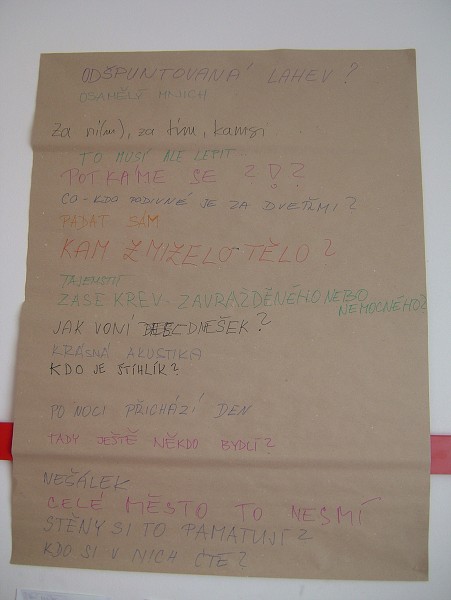 ODŠPUNTOVANÁ LAHEV?
OSAMĚLÝ MNICH
Za ní(m), za tím, kamsi
TO MUSÍ ALE LEPIT
POTKÁME SE ? ! ?
CO-KDO PODIVNÉ JE ZA DVEŘMI?
PADAT SÁM
KAM ZMIZELO TĚLO?
TAJEMSTVÍ
ZASE KREV. ZAVRAŽDĚNÉHO NEBO
NEMOCNÉHO?
JAK VONÍ DNEŠEK?
KRÁSNÁ AKUSTIKA
KDO JE ŠTIHLÍK?
PO NOCI PŘICHÁZÍ DEN
TADY JEŠTĚ NĚKDO BYDLÍ?
NEŠÁLEK
CELÉ MĚSTO TO NESMÍ
STĚNY SI TO PAMATUJÍ?
KDO SI V NICH ČTE?